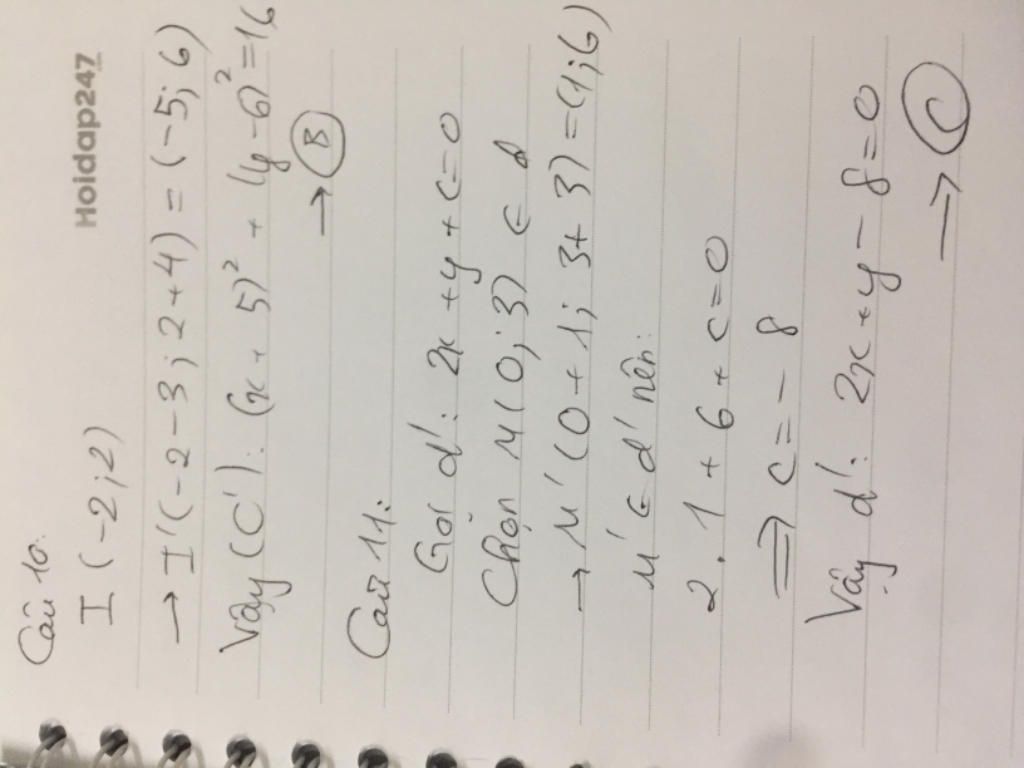 Hoidap247
Câu 10:
I (-2; 2)
→ I'(-2-3; 2+4) = (-5; 6)
Vậy (C'): (x + 5)² + (y-6)² = 16
→ B
Câu 11:
Gọi d': 2x + y + c = 0
Chọn M(0; 3) ∈ d
→ M'(0+1; 3+3) = (1; 6)
M' ∈ d' nên:
2.1 + 6 + c = 0
⇒ c = -8
Vậy d': 2x + y - 8 = 0
→ C